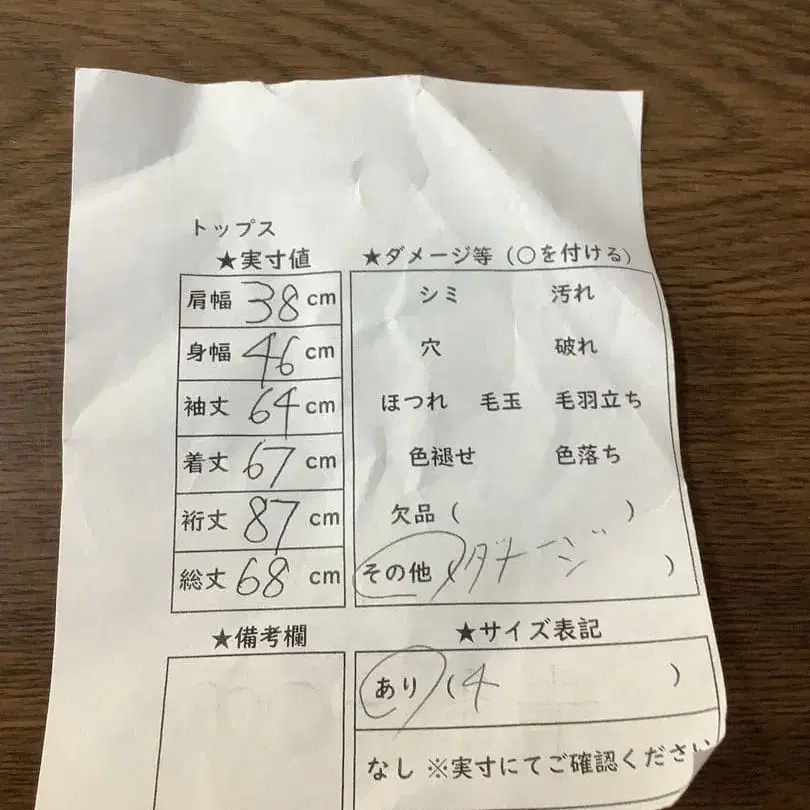 トップス
★実寸値
肩幅 38 cm
身幅 46 cm
袖丈 64 cm
着丈 67 cm
裄丈 87 cm
総丈 68 cm
★ダメージ等（○を付ける）
シミ 汚れ
穴 破れ
ほつれ 毛玉 毛羽立ち
色褪せ 色落ち
欠品（ ）
その他（ダメージ ）
★備考欄
★サイズ表記
あり（4 ）
なし ※実寸にてご確認ください